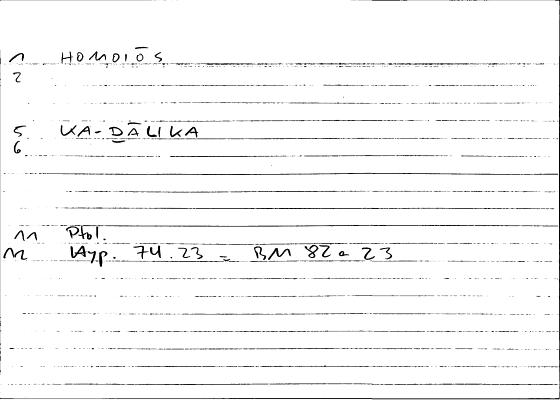 1 HOMOIŌS
2
5 KA-ḎĀLIKA
6
11 Ptol.
12 Hyp. 74.23 = BM 82a23